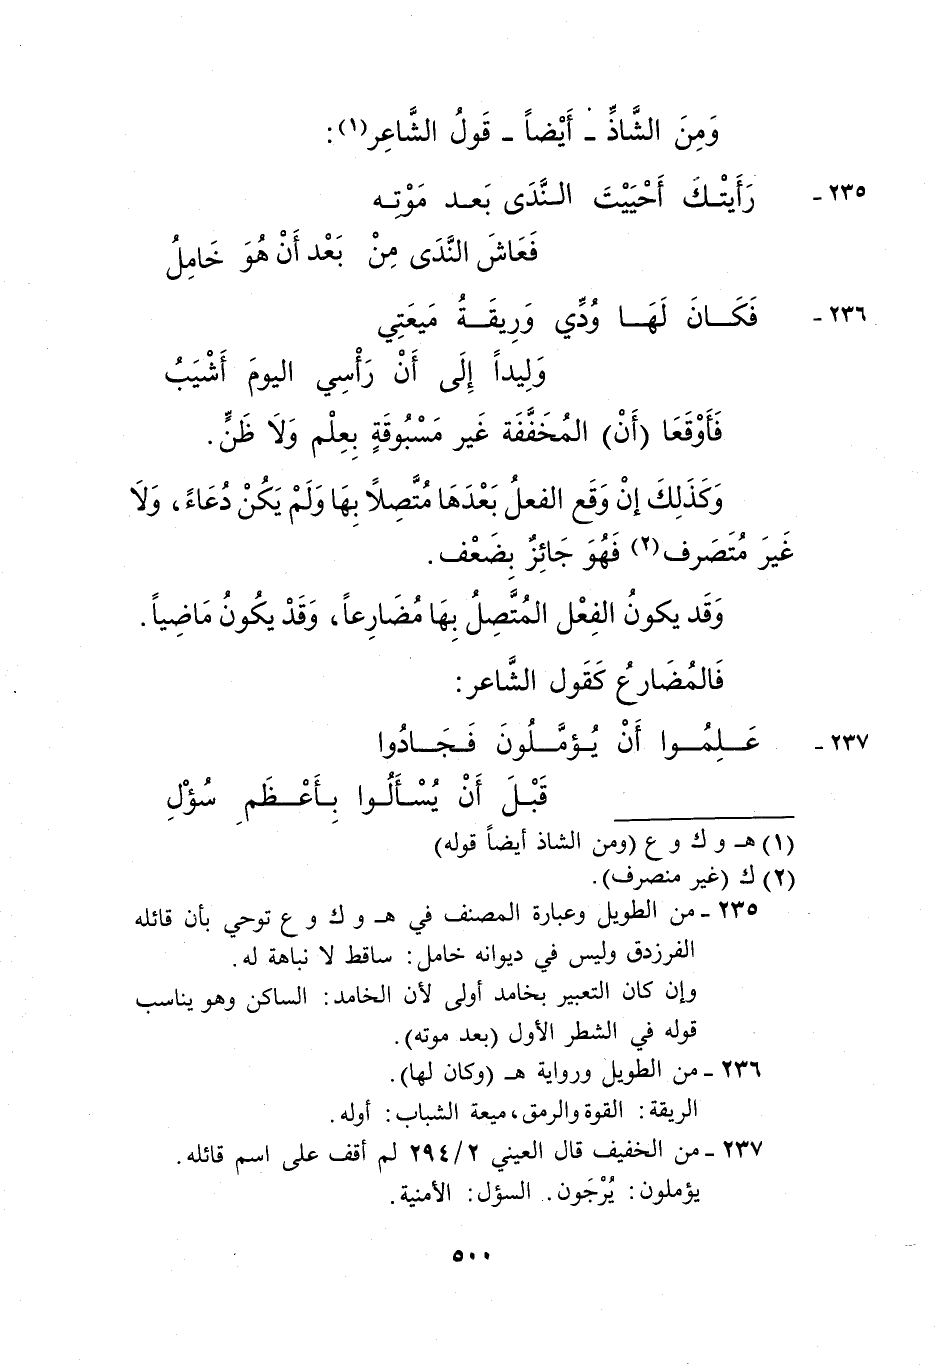 وَمِنَ الشَّاذِّ ـ أَيْضاً ـ قَولُ الشَّاعِر(١):
٢٣٥ـ رَأَيتْـكَ أَحْيَيْتَ النَّدَى بَعـد مَوْتِـه
فَعَاشَ النَّدَى مِنْ بَعْد أَنْ هُوَ خَامِلُ
٢٣٦ـ فَكَـانَ لَهَـا وُدِّي وَرِيقَـةُ مَيعَتِي
وَلِيداً إِلَى أَنْ رَأْسِي اليومَ أَشْيَبُ
فَأَوْقَعَا (أَنْ) المُخَفَّفَة غَير مَسْبُوقَةٍ بِعِلْم وَلَا ظَنٍّ.
وَكَذَلِكَ إِنْ وَقَع الفعلُ بَعْدَهَا مُتَّصِلًا بِهَا وَلَمْ يَكُنْ دُعَاءً، وَلَا
غَيرَ مُتَصَرف(٢) فَهُوَ جَائِزٌ بِضَعْف.
وَقَد يكونُ الفِعْل المُتَّصِلُ بِهَا مُضَارِعاً، وَقَدْ يكُونُ مَاضِياً.
فَالمُضَارِعُ كَقَول الشَّاعر:
٢٣٧ـ عَـلِمُـوا أَنْ يُـؤَمَّـلُونَ فَـجَـادُوا
قَبْـلَ أَنْ يُسْـأَلُـوا بِـأَعْـظَمِ سُؤْلِ
(١) هـ و ك و ع (ومن الشاذ أيضاً قوله)
(٢) ك (غير منصرف).
٢٣٥ ـ من الطويل وعبارة المصنف في هـ و ك و ع توحي بأن قائله
الفرزدق وليس في ديوانه خامل: ساقط لا نباهة له.
وإن كان التعبير بخامد أولى لأن الخامد: الساكن وهو يناسب
قوله في الشطر الأول (بعد موته).
٢٣٦ ـ من الطويل ورواية هـ (وكان لها).
الريقة: القوة والرمق، ميعة الشباب: أوله.
٢٣٧ ـ من الخفيف قال العيني ٢/ ٢٩٤ لم أقف على اسم قائله.
يؤملون: يُرْجَون. السؤل: الأمنية.
٥٠٠